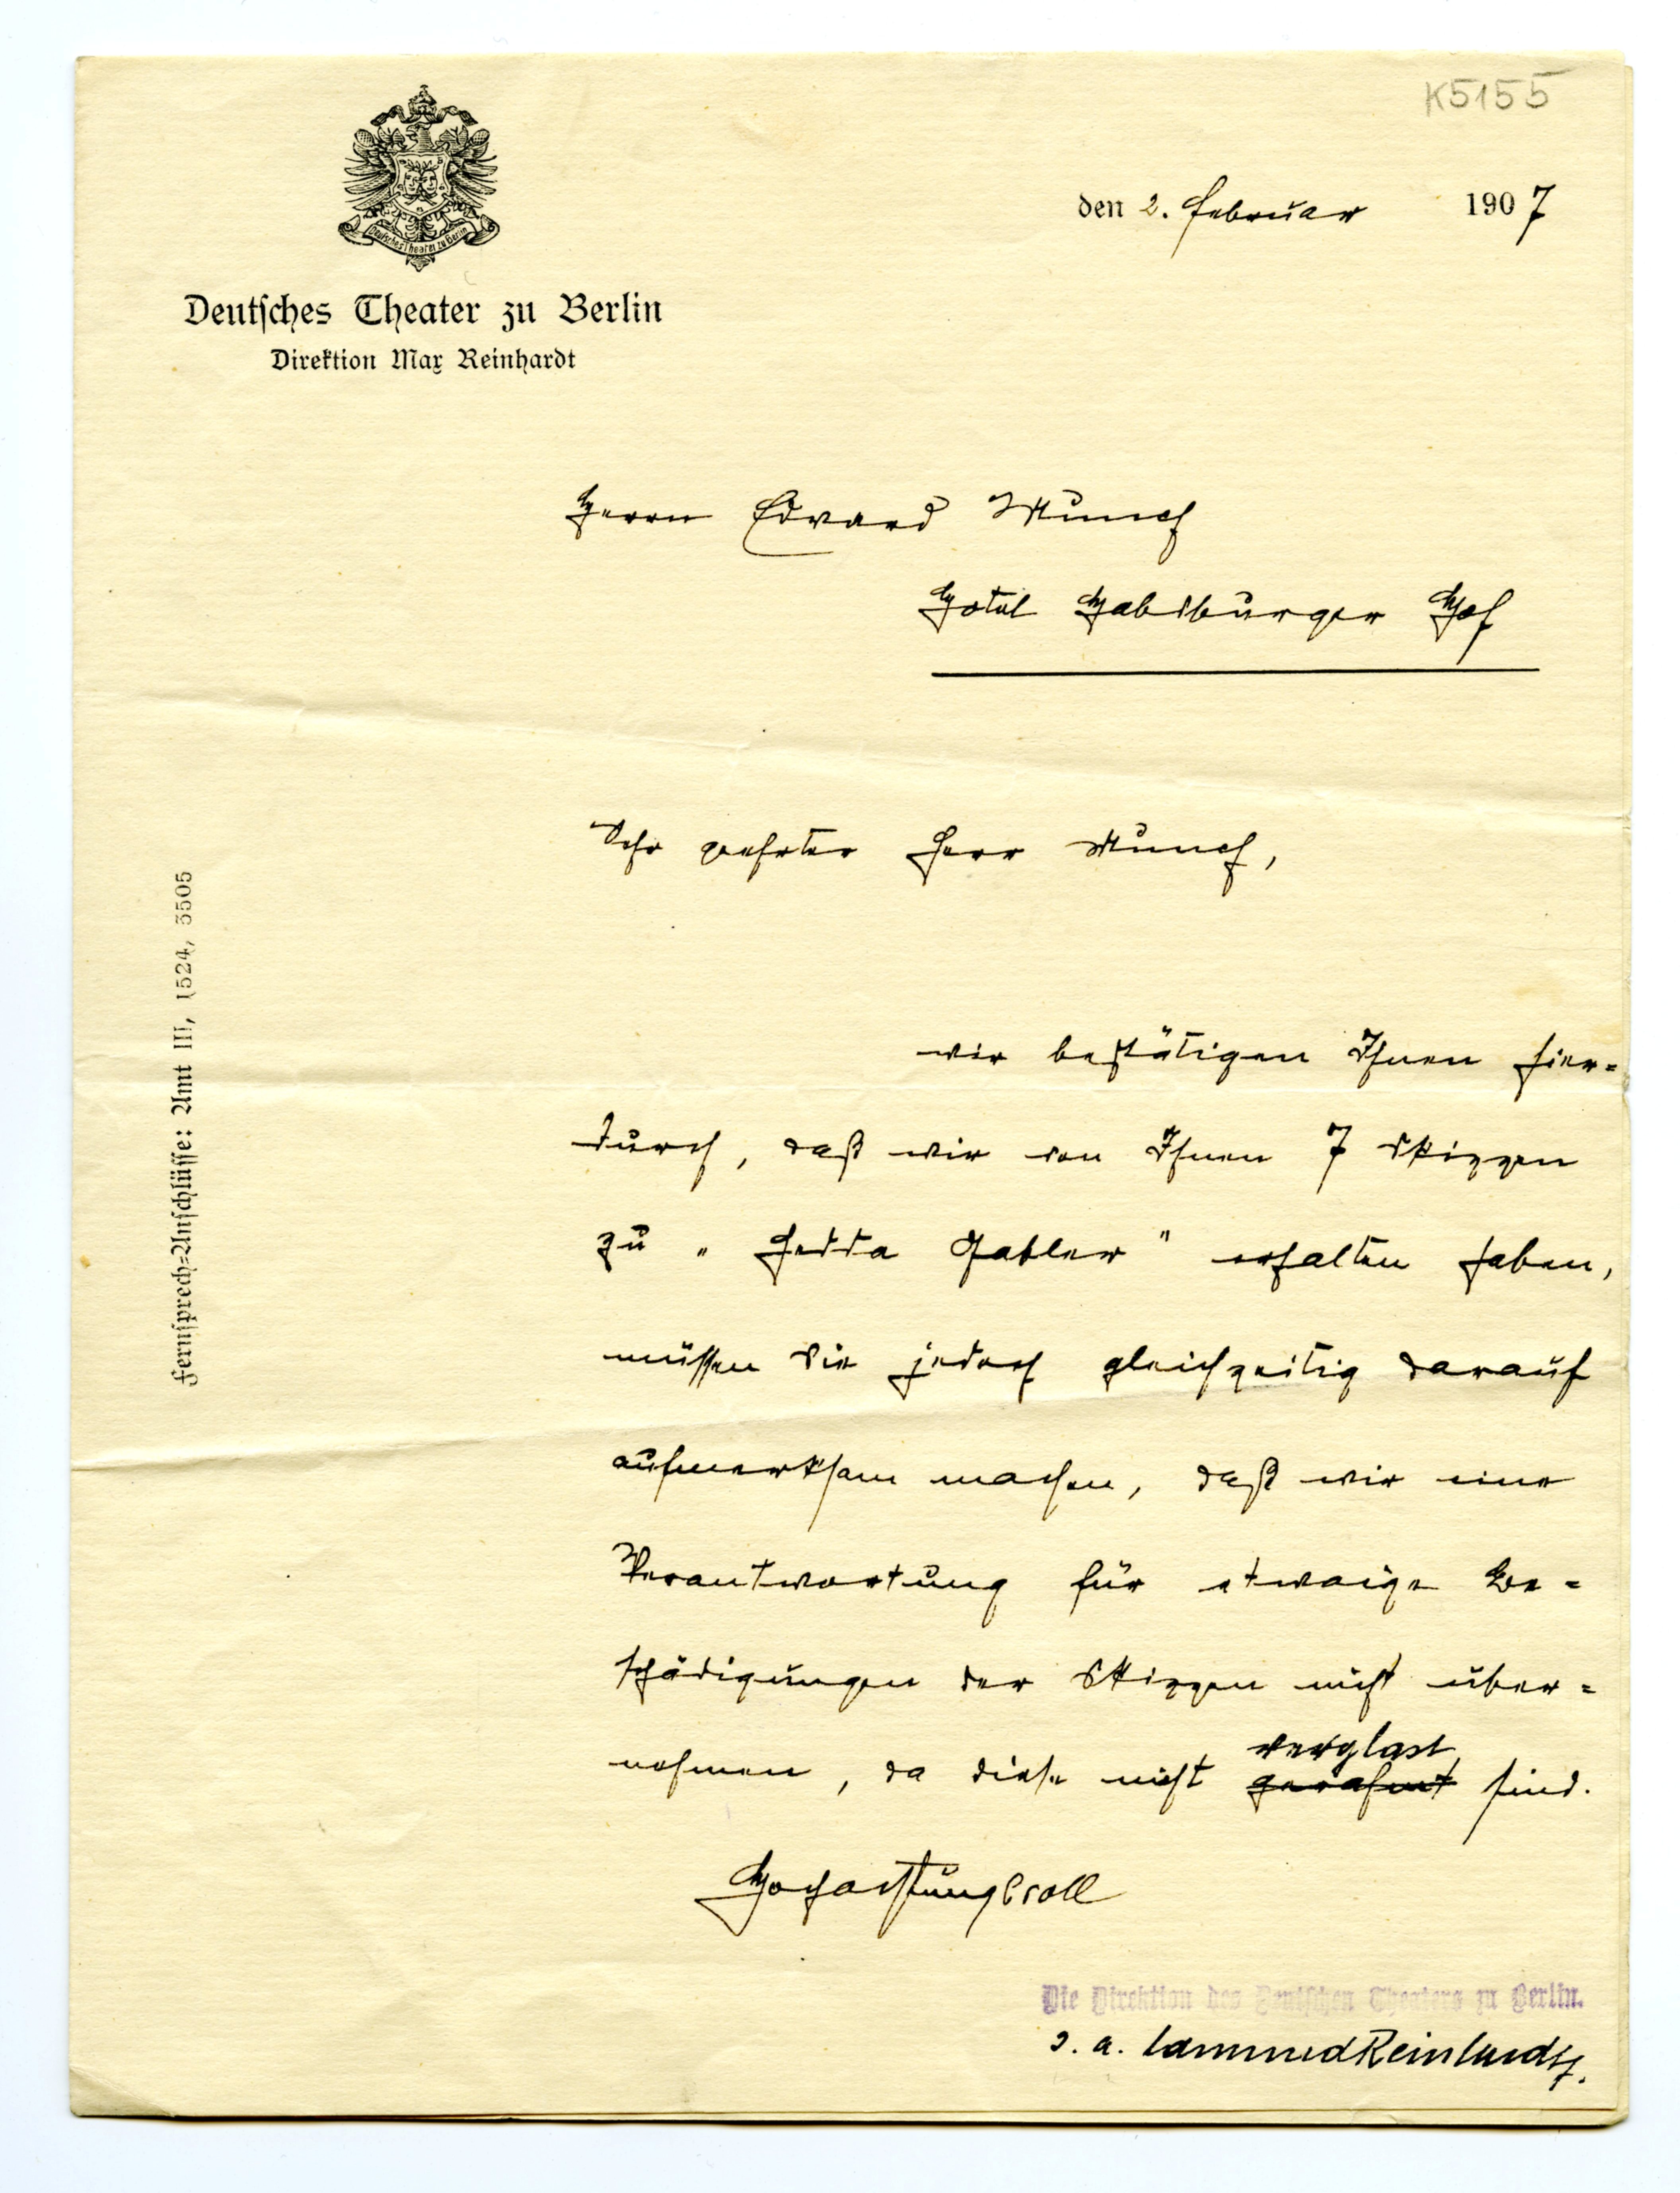 K5155
Deutsches Theater zu Berlin
den 2. Februar 1907
Deutsches Theater zu Berlin
Direktion Max Reinhardt
Herrn Edvard Munch
Hotel Habsburger Hof
Sehr geehrter Herr Munch,
wir bestätigen Ihnen hier=
durch, daß wir von Ihnen 7 Skizzen
zu „Hedda Gabler" erhalten haben,
müssen Sie jedoch gleichzeitig darauf
aufmerksam machen, daß wir eine
Verantwortung für etwaige Be=
schädigungen der Skizzen nicht über=
verglast
nehmen, da diese nicht gerahmt sind.
Hochachtungsvoll
Die Direktion des Deutschen Theaters zu Berlin.
Fernsprech=Anschlüsse: Amt III, 1524, 3505